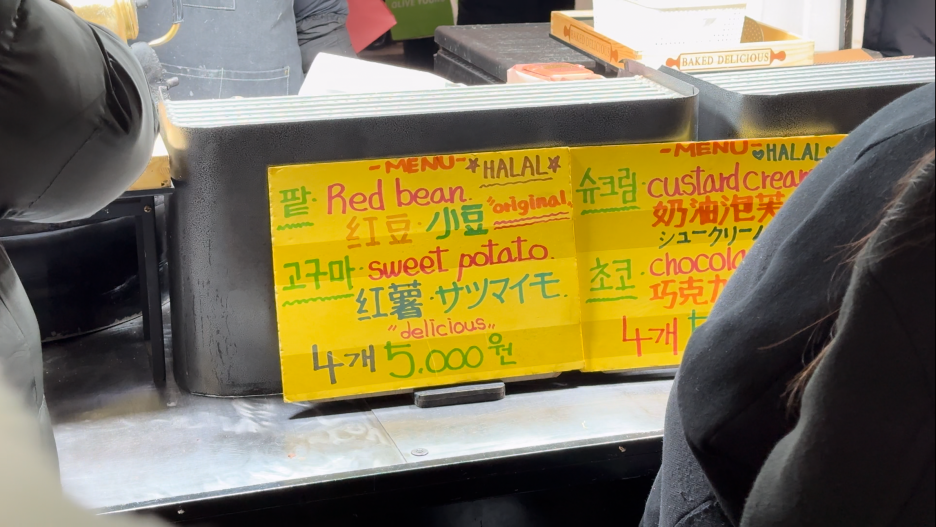 BAKED DELICIOUS
-MENU-
HALAL
팥. Red bean.
红豆 · 小豆 "original"
고구마 · sweet potato.
红薯 · サツマイモ.
"delicious"
4개 5.000원
-MENU-
HALAL
슈크림 · custard cream
奶油泡芙
シュークリーム
초코 ·
巧克力
4개